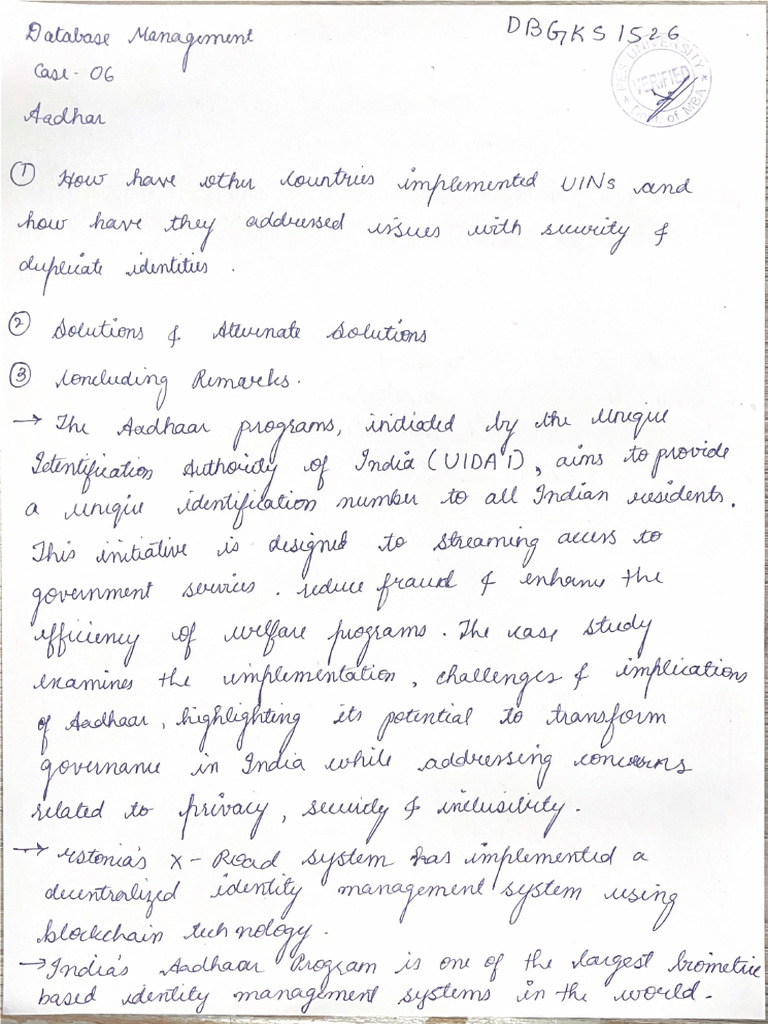 Database Management
DBGKS1526
Case - 06
PES UNIVERSITY
VERIFIED
Dept. of MBA
Aadhar
① How have other countries implemented UINs and
how have they addressed issues with security &
duplicate identities .
② Solutions & Alternate Solutions
③ Concluding Remarks.
→ The Aadhaar programs, initiated by the Unique
Identification Authority of India (UIDAI), aims to provide
a unique identification number to all Indian residents.
This initiative is designed to streaming access to
government services . reduce fraud & enhance the
efficiency of welfare programs. The case study
examines the implementation, challenges & implications
of Aadhaar, highlighting its potential to transform
governance in India while addressing concerns
related to privacy, security & inclusibity.
→ Estonia's X-Road system has implemented a
decentralized identity management system using
blockchain technology.
→ India's Aadhaar Program is one of the largest biometric
based identity management systems in the world.